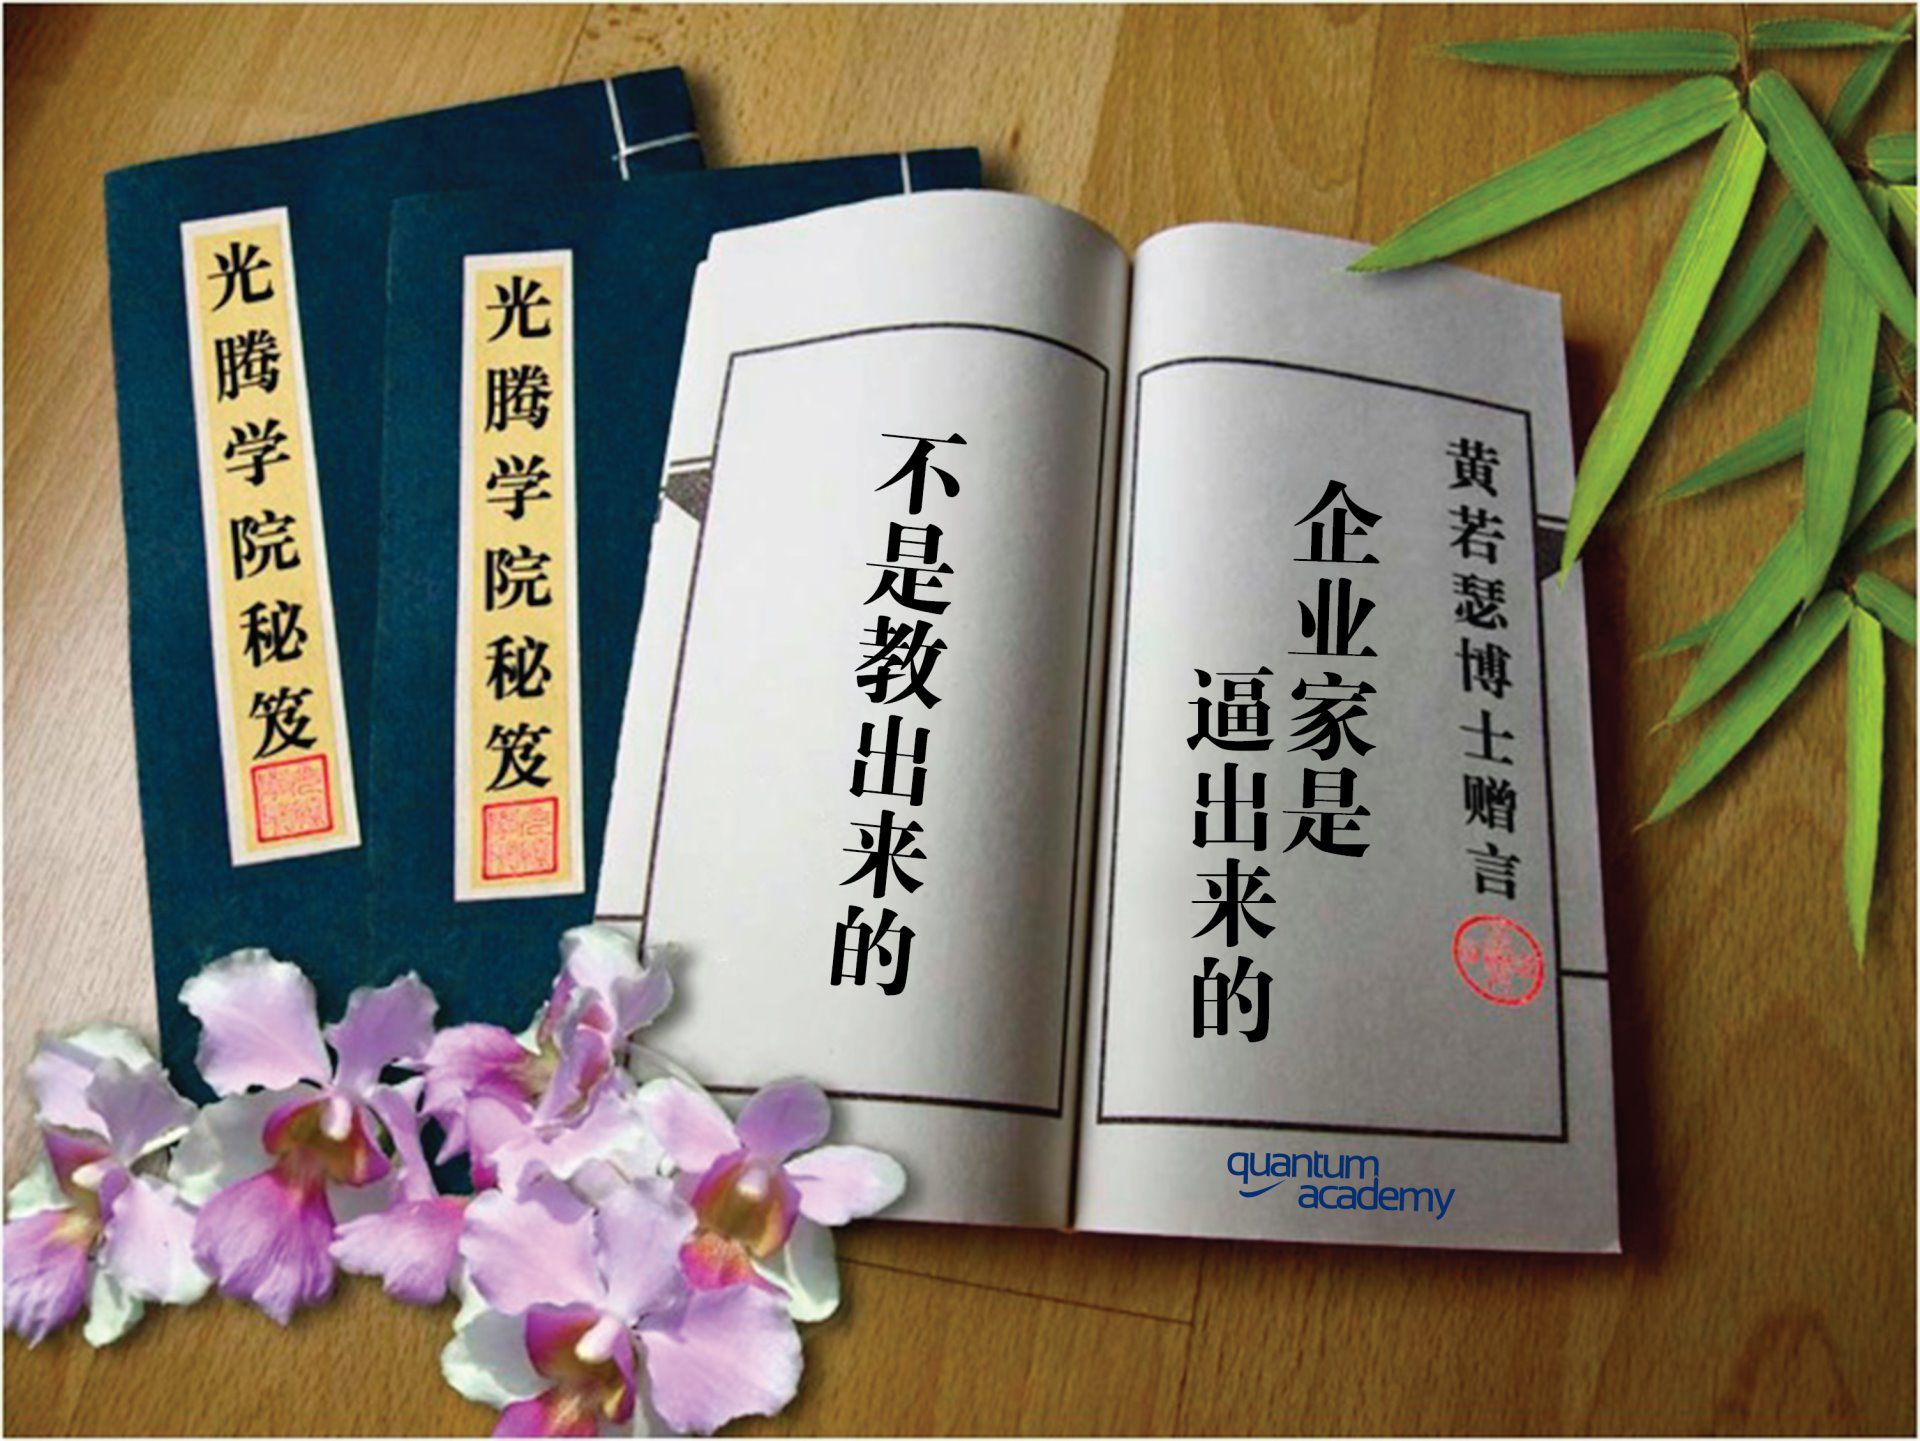 光腾学院秘笈
光腾学院秘笈
黄若瑟博士赠言
企业家是
逼出来的
不是教出来的
quantum
academy